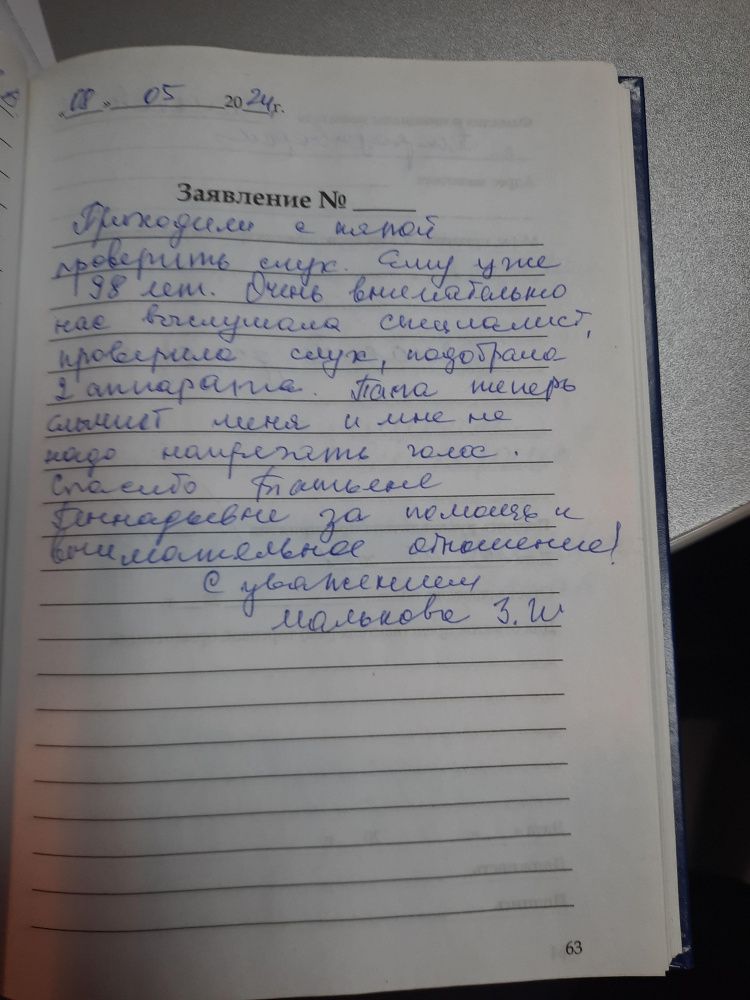 "08" 05 2024г.
Заявление № ____
Приходили с папой
проверить слух. Ему уже
98 лет. Очень внимательно
нас выслушала специалист,
проверила слух, подобрала
2 аппарата. Папа теперь
слышит меня и мне не
надо напрягать голос.
Спасибо Татьяне
Геннадьевне за помощь и
внимательное отношение!
С уважением
Малькова З.И
63